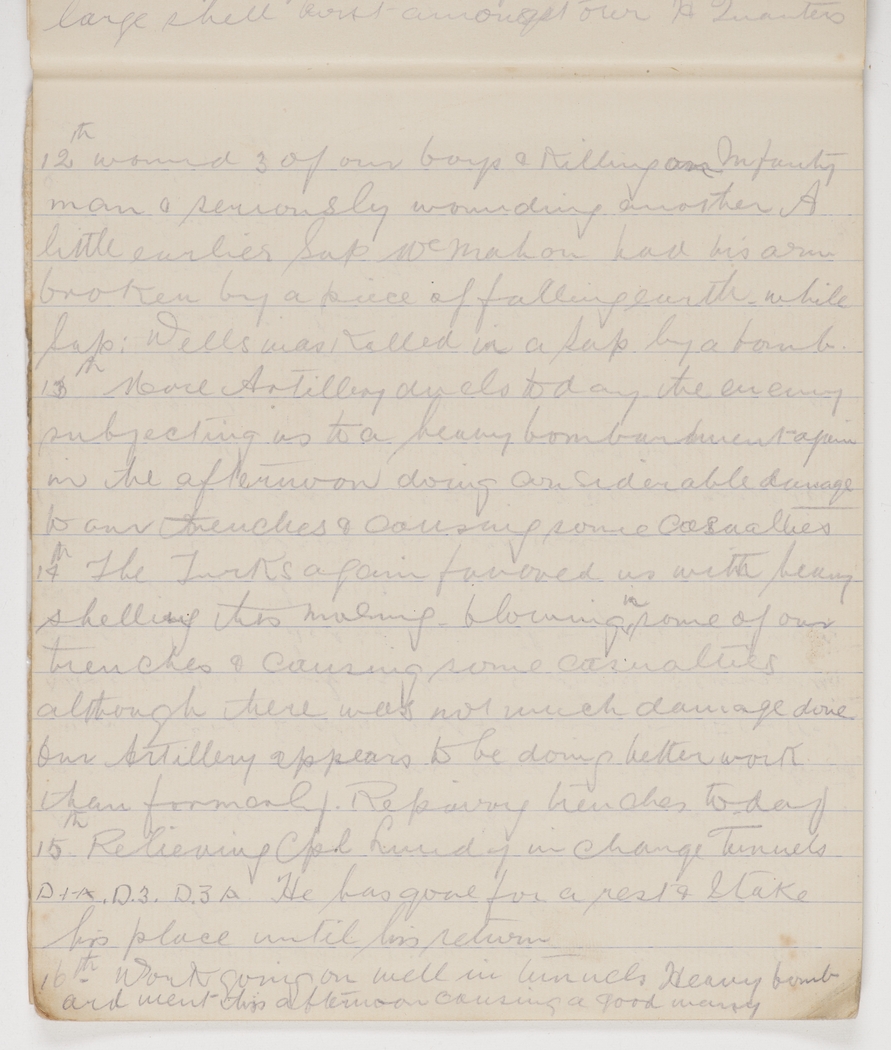 large shell burst amongst our H Quarters
12th wound 3 of our boys & killing an Infantry
man & seriously wounding another A
little earlier Sap McMahon had his arm
broken by a piece of falling earth - while
Sap: Wells was Killed in a Sap by a bomb.
13th More Artillery duels today the enemy
subjecting us to a heavy bombardment again
in the afternoon doing considerable damage
to our trenches & causing some casualties
14th The Turks again favoured us with heavy
shelling this morning - blowing in some of our
trenches & causing some casualties
although there was not much damage done
Our Artillery appears to be doing better work
than formerly. Repairing trenches to-day
15th Relieving Cpl Lundy in charge Tunnels
D.1.A. D.3. D.3A He has gone for a rest & I take
his place until his return
16th - Work going on well in tunnels Heavy bomb
ardment this afternoon causing a good many